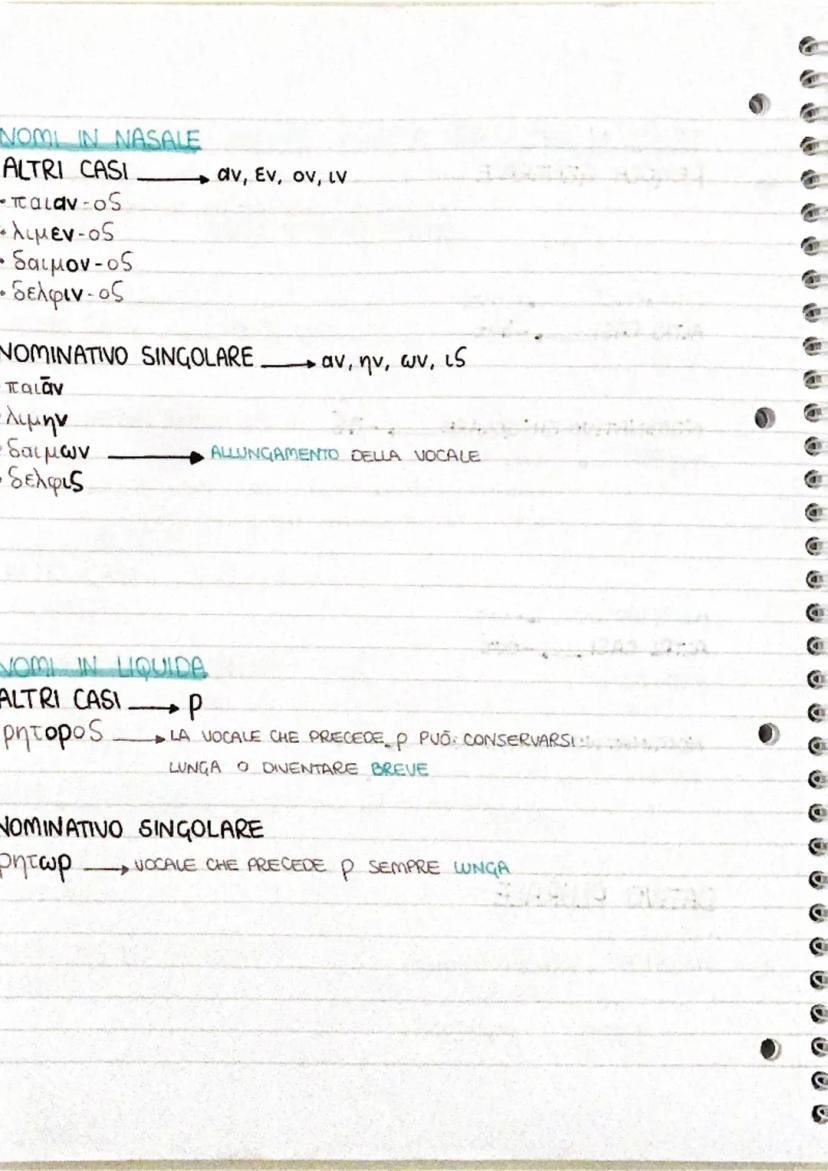 NOMI IN NASALE
ALTRI CASI → αν, εν, ον, ιν
• παιαν-ος
• λιμεν-ος
• δαιμον-ος
• δελφιν-ος
NOMINATIVO SINGOLARE → αν, ην, ων, ις
• παιᾱν
• λιμην
• δαιμων → ALLUNGAMENTO DELLA VOCALE
• δελφις
NOMI IN LIQUIDA
ALTRI CASI → ρ
ρητορος → LA VOCALE CHE PRECEDE ρ PUÒ: CONSERVARSI
LUNGA O DIVENTARE BREVE
NOMINATIVO SINGOLARE
ρητωρ → VOCALE CHE PRECEDE ρ SEMPRE LUNGA